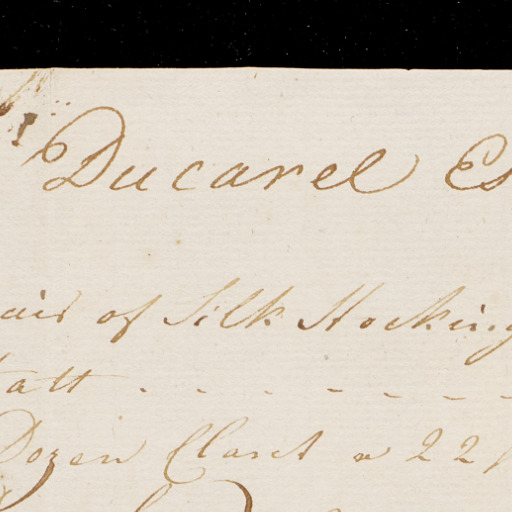 Ducarel Es
air of Silk Stocking
att - - - - - - -
Dozen Claret a 22/